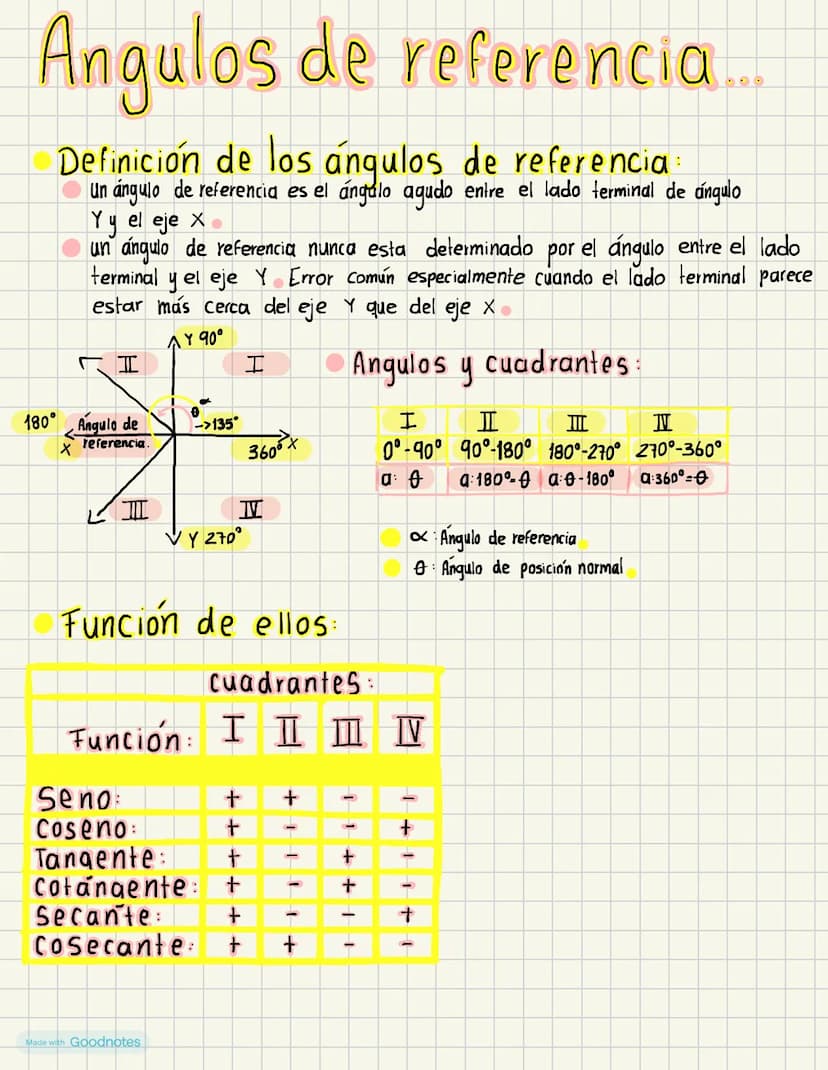 Angulos de referencia...
Definición de los ángulos de referencia:
Un ángulo de referencia es el ángulo agudo entre el lado terminal de ángulo
Y y el eje X.
un ángulo de referencia nunca esta determinado por el ángulo entre el lado
terminal y el eje Y. Error común especialmente cuando el lado terminal parece
estar más cerca del eje Y que del eje X.
Y 90°
II
I
180°
Ángulo de
referencia.
X
α
θ
->135°
360°
X
III
IV
Y 270°
Angulos y cuadrantes:
I II III IV
0°-90° 90°-180° 180°-270° 270°-360°
a: θ a:180°-θ a:θ-180° a:360°=θ
α: Ángulo de referencia.
θ: Ángulo de posición normal.
Función de ellos:
cuadrantes:
Función: I II III IV
Seno: + + - -
Coseno: + - - +
Tangente: + - + -
Cotángente: + - + -
Secante: + - - +
Cosecante: + + - -
Made with Goodnotes